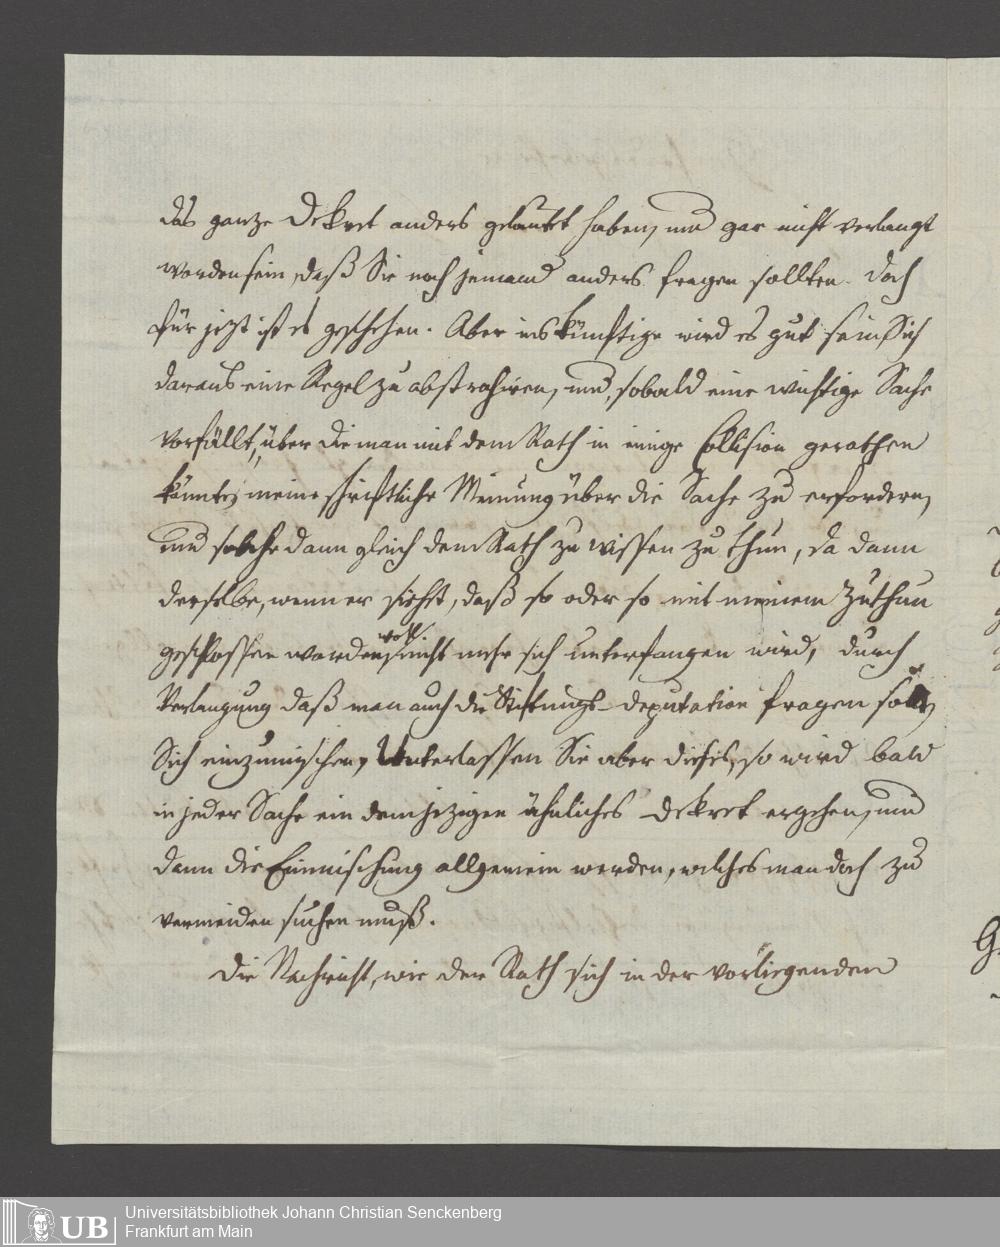 das ganze Dekret anders gelautet haben, und gar nicht verlangt
worden sein, daß Sie noch jemand anders fragen sollten. Doch
für jezt ist es geschehen. Aber ins künftige wird es gut sein, Sich
daraus eine Regel zu abstrahiren, und, sobald eine wichtige Sache
vorfällt, über die man mit dem Rath in einige Collision gerathen
könnte, meine schriftliche Meinung über die Sache zu erfordern,
und solche dann gleich dem Rath zu wissen zu thun, da dann
derselbe, wenn er siehet, daß so oder so mit meinem Zuthun
geschlossen worden, wohl nicht mehr sich unterfangen wird, durch
Verlangung daß man auch die Stiftungs-Deputation fragen soll,
Sich einzumischen, Unterlassen Sie aber dieses, so wird bald
in jeder Sache ein dem jezigen ähnliches Dekret ergehen, und
dann die Einmischung allgemein werden, welches man doch zu
vermeiden suchen muß.
Die Nachricht, wie der Rath sich in der vorliegenden
UB
Universitätsbibliothek Johann Christian Senckenberg
Frankfurt am Main